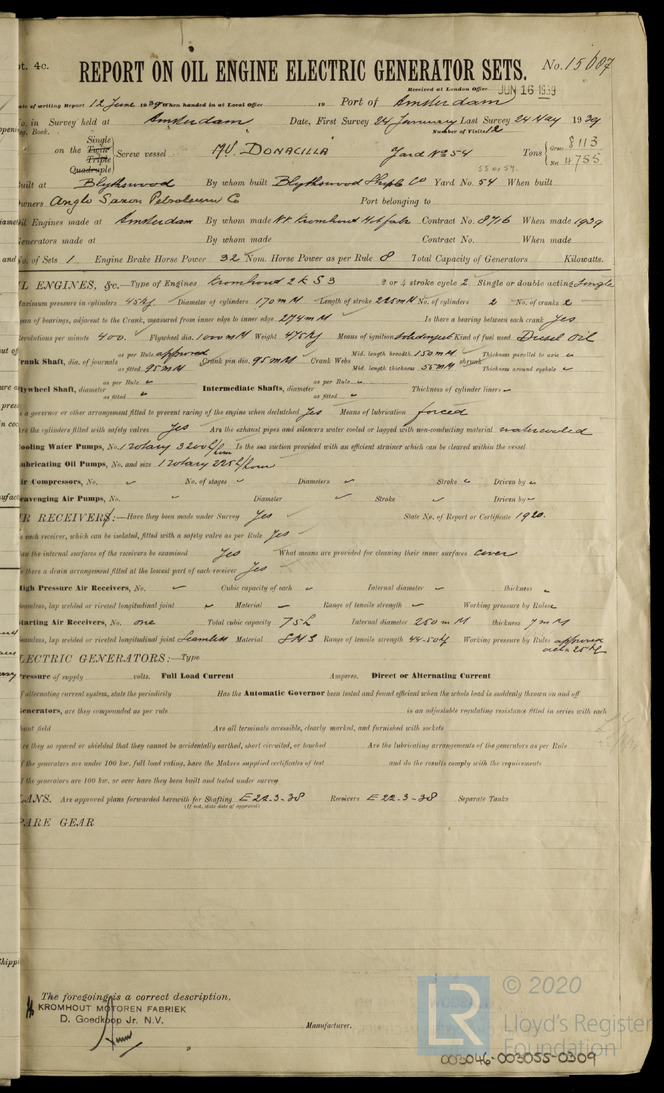 pt. 4c.
REPORT ON OIL ENGINE ELECTRIC GENERATOR SETS.
No. 15607
Received at London Office JUN 16 1939
Date of writing Report 12 June 1939 When handed in at Local Office 19 Port of Amsterdam
No. in Survey held at Amsterdam Date, First Survey 24 January Last Survey 24 May 1939
Reg. Book. Number of Visits 12
Single
on the Twin Screw vessel M.V. DONACILLA Yard No 54 Tons Gross 8113
Triple Net 4755
Quadruple 55 or 54.
Built at Blythswood By whom built Blythswood Shipb. Co Yard No. 54 When built
Owners Anglo Saxon Petroleum Co Port belonging to
Oil Engines made at Amsterdam By whom made Contract No. 8716 When made 1939
Generators made at By whom made Contract No. When made
No. of Sets 1 Engine Brake Horse Power 32 Nom. Horse Power as per Rule 8 Total Capacity of Generators Kilowatts.
OIL ENGINES, &c.—Type of Engines Kromhout 2 K S 3 2 or 4 stroke cycle 2 Single or double acting Single
Maximum pressure in cylinders 45 kg Diameter of cylinders 170 mM Length of stroke 225 mM No. of cylinders 2 No. of cranks 2
Span of bearings, adjacent to the Crank, measured from inner edge to inner edge 274 mM Is there a bearing between each crank yes
Revolutions per minute 400. Flywheel dia. 1000 mM Weight 475 kg Means of ignition Kind of fuel used Diesel Oil
Crank Shaft, dia. of journals as per Rule approved as fitted 95 mM Crank pin dia. 95 mM Crank Webs Mid. length breadth 150 mM Mid. length thickness 55 mM shrunk Thickness parallel to axis Thickness around eyehole
Flywheel Shaft, diameter as per Rule as fitted Intermediate Shafts, diameter as per Rule as fitted Thickness of cylinder liners
Is a governor or other arrangement fitted to prevent racing of the engine when declutched Yes Means of lubrication forced
Are the cylinders fitted with safety valves Yes Are the exhaust pipes and silencers water cooled or lagged with non-conducting material watercooled
Cooling Water Pumps, No. 1 rotary 3200 L/hour Is the sea suction provided with an efficient strainer which can be cleared within the vessel
Lubricating Oil Pumps, No. and size 1 rotary 225 L/hour
Air Compressors, No. No. of stages Diameters Stroke Driven by
Scavenging Air Pumps, No. Diameter Stroke Driven by
AIR RECEIVERS:—Have they been made under Survey Yes State No. of Report or Certificate 1920.
Is each receiver, which can be isolated, fitted with a safety valve as per Rule Yes
Can the internal surfaces of the receivers be examined Yes What means are provided for cleaning their inner surfaces cover
Is there a drain arrangement fitted at the lowest part of each receiver Yes
High Pressure Air Receivers, No. Cubic capacity of each Internal diameter thickness
Seamless, lap welded or riveted longitudinal joint Material Range of tensile strength Working pressure by Rules
Starting Air Receivers, No. one Total cubic capacity 75 L Internal diameter 250 mM thickness 7 mM
Seamless, lap welded or riveted longitudinal joint Seamless Material S M S Range of tensile strength 44-50 kg Working pressure by Rules approved
25 kg
ELECTRIC GENERATORS:—Type
Pressure of supply volts. Full Load Current Amperes. Direct or Alternating Current
If alternating current system, state the periodicity Has the Automatic Governor been tested and found efficient when the whole load is suddenly thrown on and off
Generators, are they compounded as per rule is an adjustable regulating resistance fitted in series with each
shunt field Are all terminals accessible, clearly marked, and furnished with sockets
Are they so spaced or shielded that they cannot be accidentally earthed, short circuited, or touched Are the lubricating arrangements of the generators as per Rule
If the generators are under 100 kw. full load rating, have the Makers supplied certificates of test and do the results comply with the requirements
If the generators are 100 kw. or over have they been built and tested under survey
PLANS. Are approved plans forwarded herewith for Shafting E 22-3-38 Receivers E 22-3-38 Separate Tanks
(If not, state date of approval)
SPARE GEAR
The foregoing is a correct description,
KROMHOUT MOTOREN FABRIEK
D. Goedkoop Jr. N.V.
Manufacturer.
LR
© 2020
Lloyd's Register
Foundation
003046-003055-0309